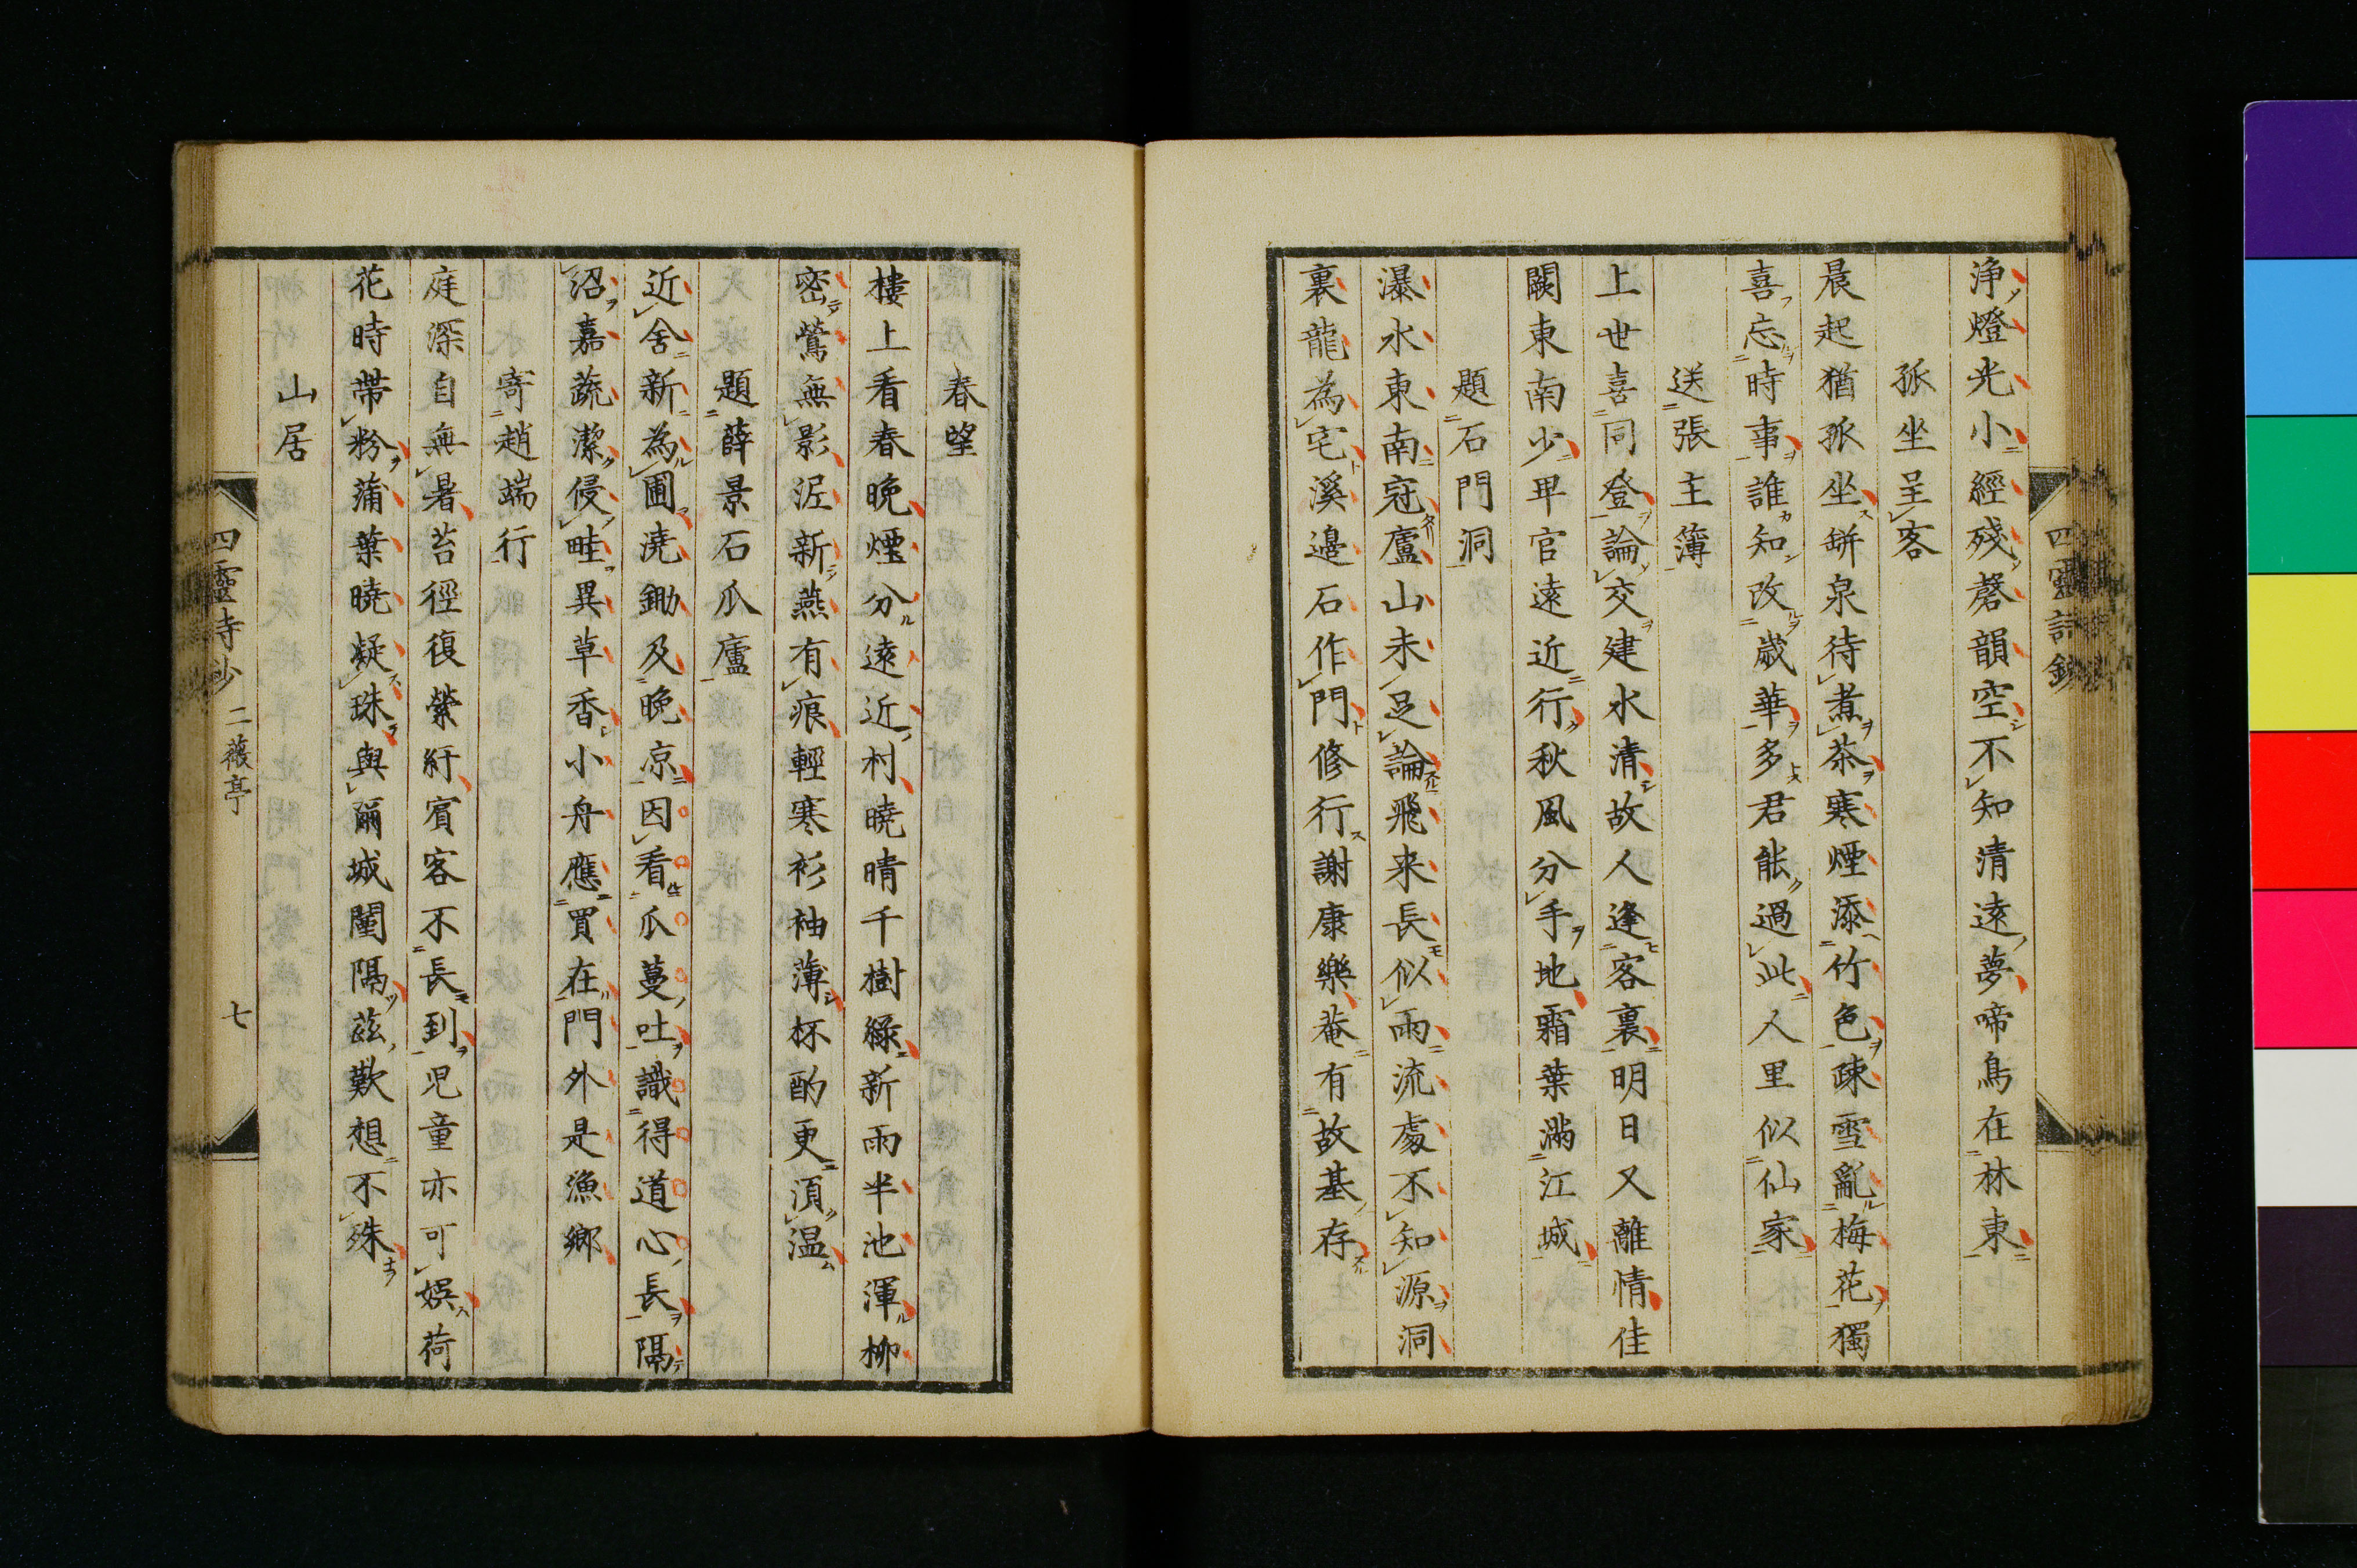 四靈詩鈔
浄燈光小經殘磬韻空不知清遠夢啼鳥在林東
孤坐呈客
晨起猶孤坐缾泉待煮茶寒煙添竹色疎雪亂梅花獨
喜忘時事誰知改歳華多君能過此人里似仙家
送張主簿
上世喜同登論交建水清故人逢客裏明日又離情佳
闕東南少卑官遠近行秋風分手地霜葉滿江城
題石門洞
瀑水東南冠廬山未足論飛来長似雨流處不知源洞
裏龍為宅溪邉石作門修行謝康樂菴有故基存
春望
樓上看春晩煙分遠近村曉晴千樹綠新雨半池渾柳
密鶯無影泥新燕有痕輕寒衫袖薄杯酌更須温
題薛景石瓜廬
近舎新為圃澆鋤及晩凉因看瓜蔓吐識得道心長隔
沼嘉蔬潔侵畦異草香小舟應買在門外是漁鄉
寄趙端行
庭深自無暑苔徑復縈紆賓客不長到児童亦可娯荷
花時帯粉蒲葉曉凝珠與爾城闉隔茲歎想不殊
山居
四靈寺少 二薇亭 七